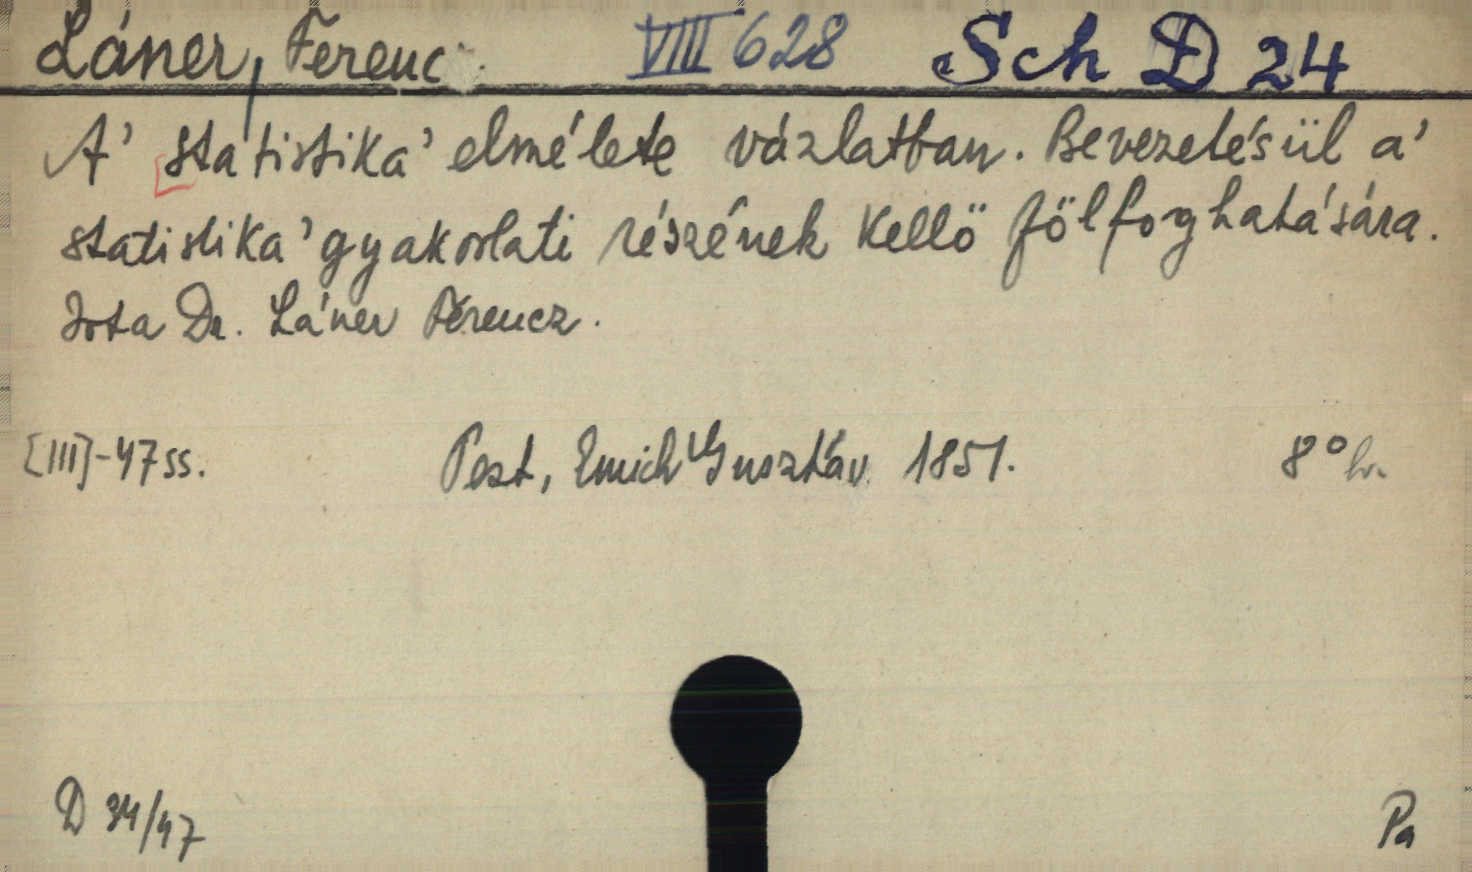 Láner, Ferenc VIII 628 Sch D 24
A' statistika' elmélete vázlatban. Bevezetésül a'
statistika' gyakorlati részének kellő fölfoghatására.
Irta Dr. Láner Ferencz.
[III]-47 ss. Pest, Emich Gusztáv 1851. 8° hr.
D 34/47 Pa